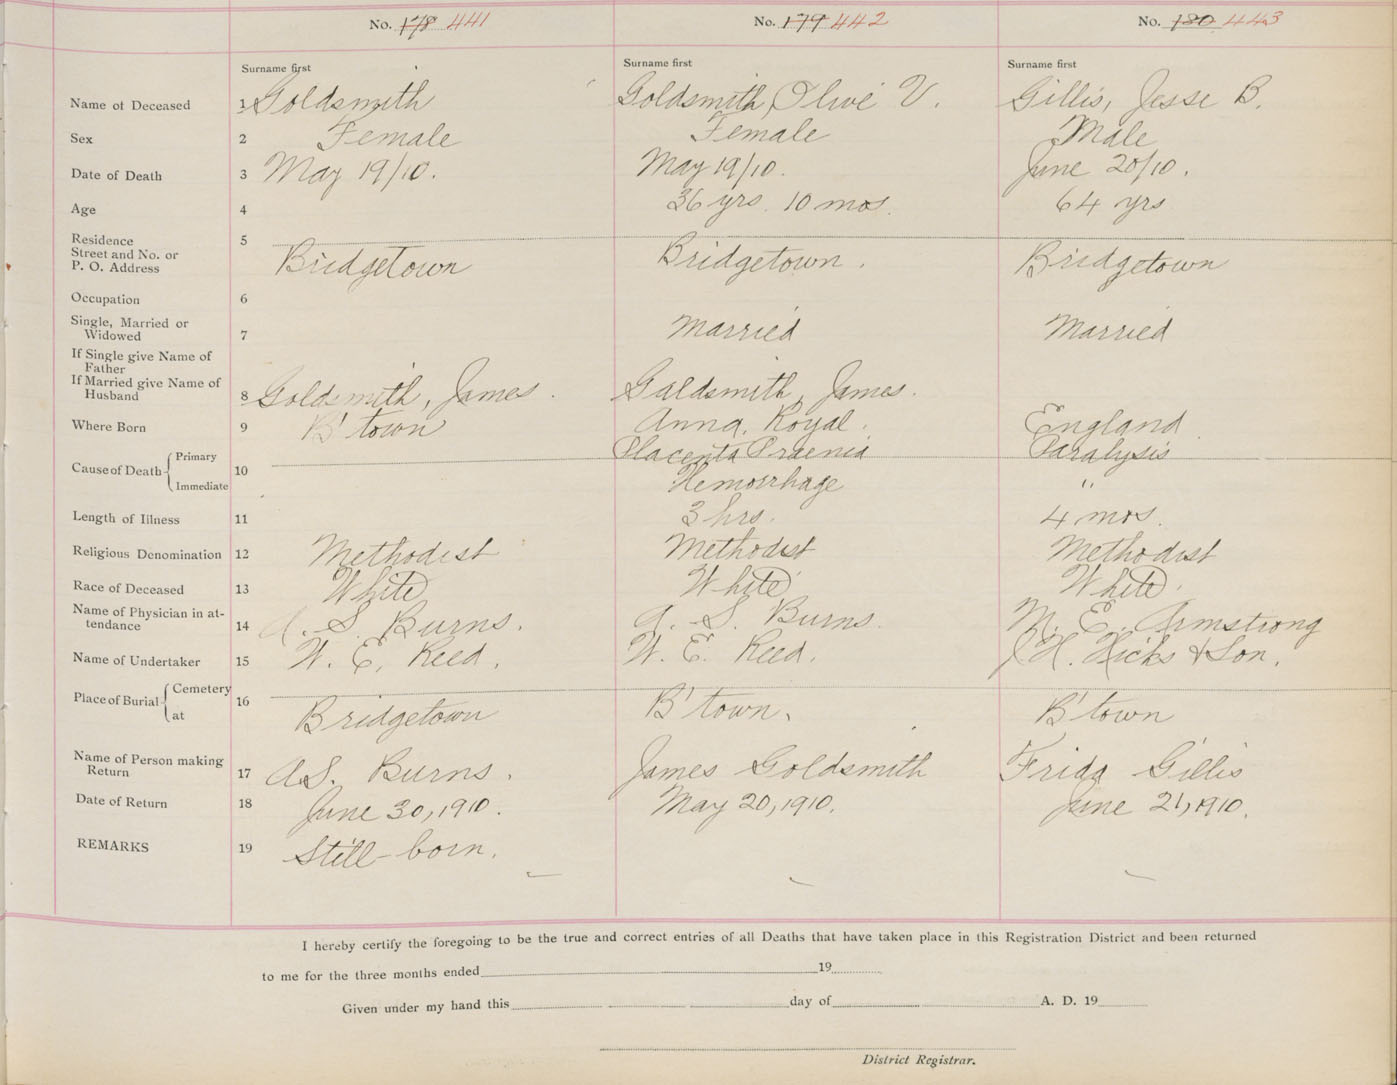 No. 178 441 No. 179 442 No. 180 443
Surname first Surname first Surname first
Name of Deceased 1 Goldsmith Goldsmith, Olive V. Gillis, Jesse B.
Sex 2 Female Female Male
Date of Death 3 May 19/10. May 19/10. June 20/10.
Age 4 36 yrs. 10 mos. 64 yrs
Residence 5
Street and No. or
P. O. Address Bridgetown Bridgetown. Bridgetown
Occupation 6
Single, Married or
Widowed 7 Married Married
If Single give Name of
Father
If Married give Name of
Husband 8 Goldsmith, James. Galdsmith, James.
Where Born 9 B'town Anna. Royal. England
Cause of Death { Primary 10 Placenta Praenia Paralysis
Immediate Hemorrhage "
Length of Illness 11 3 hrs. 4 mos.
Religious Denomination 12 Methodist Methodist Methodist
Race of Deceased 13 White White White.
Name of Physician in at-
tendance 14 A. S. Burns. A. S. Burns. M. E. Armstrong
Name of Undertaker 15 W. E. Reed. W. E. Reed. J H. Hicks & Son.
Place of Burial { Cemetery 16
at Bridgetown B'town. B'town
Name of Person making
Return 17 A S. Burns. James Goldsmith Frida Gillis
Date of Return 18 June 30, 1910. May 20, 1910. June 21, 1910.
REMARKS 19 Still-born.
I hereby certify the foregoing to be the true and correct entries of all Deaths that have taken place in this Registration District and been returned
to me for the three months ended 19
Given under my hand this day of A. D. 19
District Registrar.